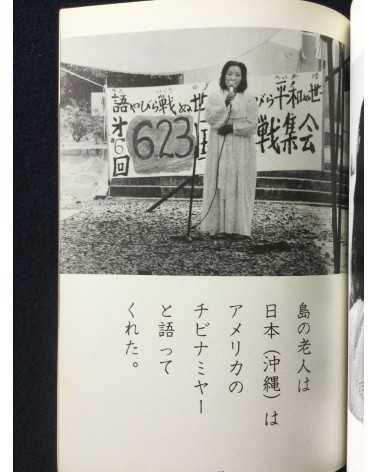 語やびら戦ぬ世 びら平和ぬ世
第6回 623 戦集会
島の老人は
日本（沖縄）は
アメリカの
チビナミヤー
と語って
くれた。